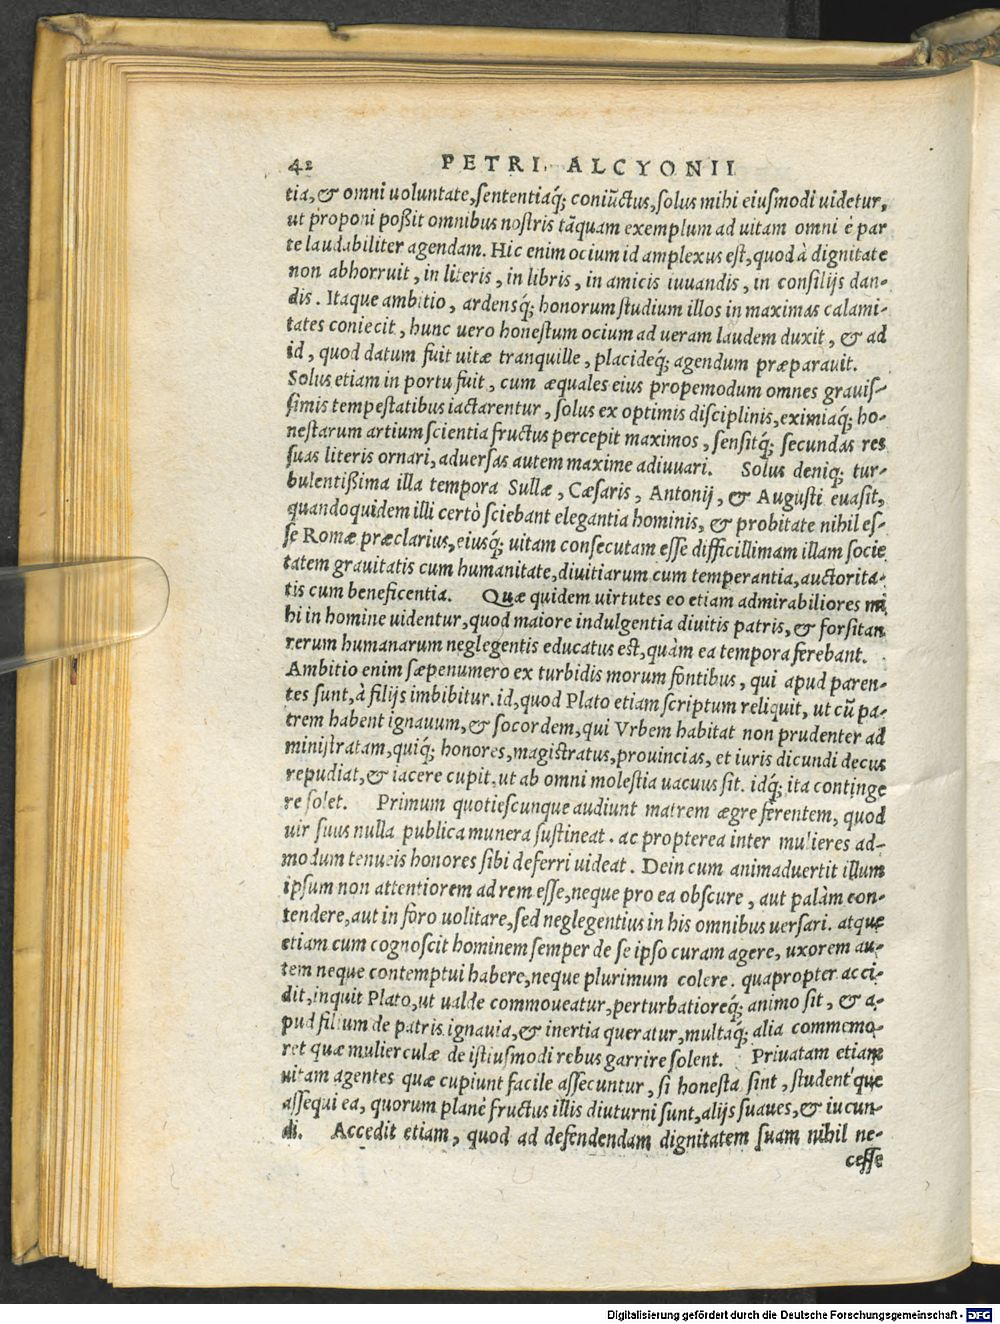 42 PETRI ALCYONII
tia, & omni uoluntate, sententiaq́; coniũctus, solus mihi eiusmodi uidetur,
ut proponi poßit omnibus nostris tãquam exemplum ad uitam omni è par
te laudabiliter agendam. Hic enim ocium id amplexus est, quod à dignitate
non abhorruit, in literis, in libris, in amicis iuuandis, in consilijs dan-
dis. Itaque ambitio, ardensq́; honorum studium illos in maximas calami-
tates coniecit, hunc uero honestum ocium ad ueram laudem duxit, & ad
id, quod datum fuit uitæ tranquille, placideq́; agendum præparauit.
Solus etiam in portu fuit, cum æquales eius propemodum omnes grauis-
simis tempestatibus iactarentur, solus ex optimis disciplinis, eximiaq́; ho-
nestarum artium scientia fructus percepit maximos, sensitq́; secundas res
suas literis ornari, aduersas autem maxime adiuuari. Solus deniq; tur-
bulentißima illa tempora Sullæ, Cæsaris, Antonij, & Augusti euasit,
quandoquidem illi certò sciebant elegantia hominis, & probitate nihil es-
se Romæ præclarius, eiusq́; uitam consecutam esse difficillimam illam socie
tatem grauitatis cum humanitate, diuitiarum cum temperantia, auctorita-
tis cum beneficentia. Quæ quidem uirtutes eo etiam admirabiliores mi
hi in homine uidentur, quod maiore indulgentia diuitis patris, & forsitan
rerum humanarum neglegentis educatus est, quàm ea tempora ferebant.
Ambitio enim sæpenumero ex turbidis morum fontibus, qui apud paren-
tes sunt, à filijs imbibitur. id, quod Plato etiam scriptum reliquit, ut cũ pa-
trem habent ignauum, & socordem, qui Vrbem habitat non prudenter ad
ministratam, quiq́; honores, magistratus, prouincias, et iuris dicundi decus
repudiat, & iacere cupit, ut ab omni molestia uacuus sit. idq́; ita continge
re solet. Primum quotiescunque audiunt matrem ægre ferentem, quod
uir suus nulla publica munera sustineat. ac propterea inter mulieres ad-
modum tenueis honores sibi deferri uideat. Dein cum animaduertit illum
ipsum non attentiorem ad rem esse, neque pro ea obscure, aut palàm con-
tendere, aut in foro uolitare, sed neglegentius in his omnibus uersari. atque
etiam cum cognoscit hominem semper de se ipso curam agere, uxorem au-
tem neque contemptui habere, neque plurimum colere. quapropter acci-
dit, inquit Plato, ut ualde commoueatur, perturbatioreq́; animo sit, & a-
pud filium de patris ignauia, & inertia queratur, multaq́; alia commemo-
ret quæ mulierculæ de istiusmodi rebus garrire solent. Priuatam etiam
uitam agentes quæ cupiunt facile assecuntur, si honesta sint, student'que
assequi ea, quorum planè fructus illis diuturni sunt, alijs suaues, & iucun-
di. Accedit etiam, quod ad defendendam dignitatem suam nihil ne-
cesse
Digitalisierung gefördert durch die Deutsche Forschungsgemeinschaft - DFG